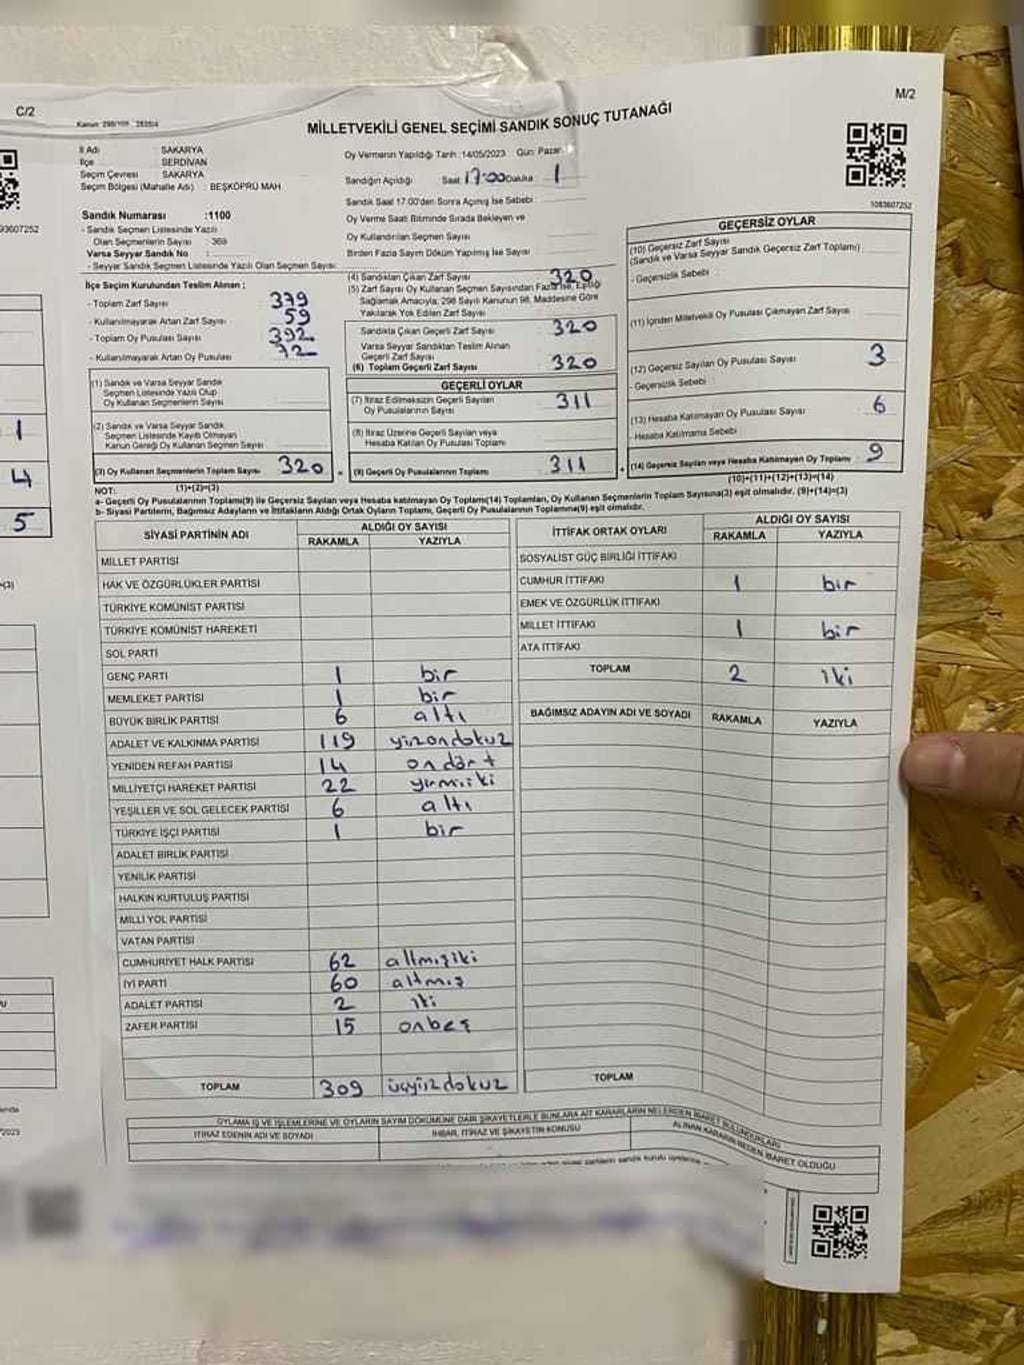 C/2
M/2
MİLLETVEKİLİ GENEL SEÇİMİ SANDIK SONUÇ TUTANAĞI
İl Adı SAKARYA
İlçe SERDİVAN
Seçim Çevresi SAKARYA
Seçim Bölgesi (Mahalle Adı) : BEŞKÖPRÜ MAH
Sandık Numarası :1100
- Sandık Seçmen Listesinde Yazılı
Olan Seçmenlerin Sayısı : 369
Varsa Seyyar Sandık No :
- Seyyar Sandık Seçmen Listesinde Yazılı Olan Seçmen Sayısı:
İlçe Seçim Kurulundan Teslim Alınan ;
- Toplam Zarf Sayısı 379
- Kullanılmayarak Artan Zarf Sayısı 59
- Toplam Oy Pusulası Sayısı 392
- Kullanılmayarak Artan Oy Pusulası 72
(1) Sandık ve Varsa Seyyar Sandık
Seçmen Listesinde Yazılı Olup
Oy Kullanan Seçmenlerin Sayısı
(2) Sandık ve Varsa Seyyar Sandık
Seçmen Listesinde Kayıtlı Olmayan
Kanun Gereği Oy Kullanan Seçmen Sayısı
(3) Oy Kullanan Seçmenlerin Toplam Sayısı 320
(1)+(2)=(3)
Oy Vermenin Yapıldığı Tarih :14/05/2023 Gün: Pazar
Sandığın Açıldığı Saat 17:00 Dakika 1
Sandık Saat 17.00'den Sonra Açılmış İse Sebebi
Oy Verme Saati Bitiminde Sırada Bekleyen ve
Oy Kullandırılan Seçmen Sayısı
Birden Fazla Sayım Döküm Yapılmış İse Sayısı
(4) Sandıktan Çıkan Zarf Sayısı 320
(5) Zarf Sayısı Oy Kullanan Seçmen Sayısından Fazla İse, Eşitliği
Sağlamak Amacıyla, 298 Sayılı Kanunun 98. Maddesine Göre
Yakılarak Yok Edilen Zarf Sayısı
Sandıkta Çıkan Geçerli Zarf Sayısı 320
Varsa Seyyar Sandıktan Teslim Alınan
Geçerli Zarf Sayısı
(6) Toplam Geçerli Zarf Sayısı 320
GEÇERLİ OYLAR
(7) İtiraz Edilmeksizin Geçerli Sayılan
Oy Pusulalarının Sayısı 311
(8) İtiraz Üzerine Geçerli Sayılan veya
Hesaba Katılan Oy Pusulası Toplamı
(9) Geçerli Oy Pusulalarının Toplamı 311
1083607252
GEÇERSİZ OYLAR
(10) Geçersiz Zarf Sayısı
(Sandık ve Varsa Seyyar Sandık Geçersiz Zarf Toplamı)
- Geçersizlik Sebebi :
(11) İçinden Milletvekili Oy Pusulası Çıkmayan Zarf Sayısı
(12) Geçersiz Sayılan Oy Pusulası Sayısı 3
- Geçersizlik Sebebi :
(13) Hesaba Katılmayan Oy Pusulası Sayısı 6
- Hesaba Katılmama Sebebi
(14) Geçersiz Sayılan veya Hesaba Katılmayan Oy Toplamı 9
(10)+(11)+(12)+(13)=(14)
NOT:
a- Geçerli Oy Pusulalarının Toplamı(9) ile Geçersiz Sayılan veya Hesaba katılmayan Oy Toplamı(14) Toplamları, Oy Kullanan Seçmenlerin Toplam Sayısına(3) eşit olmalıdır. (9)+(14)=(3)
b- Siyasi Partilerin, Bağımsız Adayların ve İttifakların Aldığı Ortak Oyların Toplamı, Geçerli Oy Pusulalarının Toplamına(9) eşit olmalıdır.
SİYASİ PARTİNİN ADI ALDIĞI OY SAYISI
RAKAMLA YAZIYLA
MİLLET PARTİSİ
HAK VE ÖZGÜRLÜKLER PARTİSİ
TÜRKİYE KOMÜNİST PARTİSİ
TÜRKİYE KOMÜNİST HAREKETİ
SOL PARTİ
GENÇ PARTİ 1 bir
MEMLEKET PARTİSİ 1 bir
BÜYÜK BİRLİK PARTİSİ 6 altı
ADALET VE KALKINMA PARTİSİ 119 yüzondokuz
YENİDEN REFAH PARTİSİ 14 ondört
MİLLİYETÇİ HAREKET PARTİSİ 22 yirmiiki
YEŞİLLER VE SOL GELECEK PARTİSİ 6 altı
TÜRKİYE İŞÇİ PARTİSİ 1 bir
ADALET BİRLİK PARTİSİ
YENİLİK PARTİSİ
HALKIN KURTULUŞ PARTİSİ
MİLLİ YOL PARTİSİ
VATAN PARTİSİ
CUMHURİYET HALK PARTİSİ 62 altmışiki
İYİ PARTİ 60 altmış
ADALET PARTİSİ 2 iki
ZAFER PARTİSİ 15 onbeş
TOPLAM 309 üçyüzdokuz
İTTİFAK ORTAK OYLARI ALDIĞI OY SAYISI
RAKAMLA YAZIYLA
SOSYALİST GÜÇ BİRLİĞİ İTTİFAKI
CUMHUR İTTİFAKI 1 bir
EMEK VE ÖZGÜRLÜK İTTİFAKI
MİLLET İTTİFAKI 1 bir
ATA İTTİFAKI
TOPLAM 2 iki
BAĞIMSIZ ADAYIN ADI VE SOYADI RAKAMLA YAZIYLA
TOPLAM
OYLAMA İŞ VE İŞLEMLERİNE VE OYLARIN SAYIM DÖKÜMÜNE DAİR ŞİKAYETLERLE BUNLARA AİT KARARLARIN NELERDEN İBARET BULUNDUKLARI
İTİRAZ EDENİN ADI VE SOYADI İHBAR, İTİRAZ VE ŞİKAYETİN KONUSU ALINAN KARARIN NEDEN İBARET OLDUĞU
93607252
1
4
5